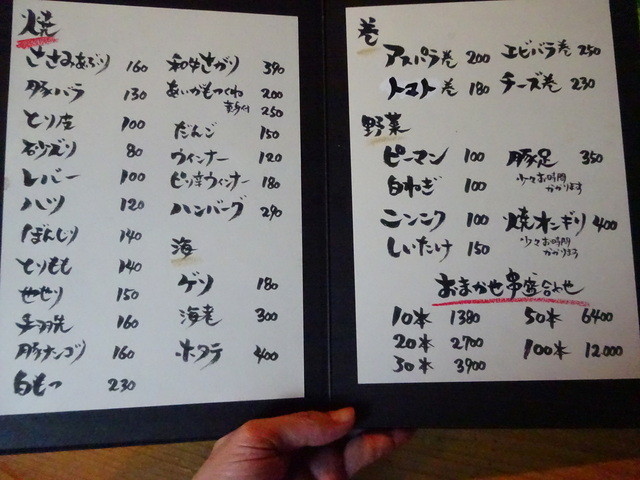 焼
ささみあぶり 160
豚バラ 130
とり皮 100
砂ズリ 80
レバー 100
ハツ 120
ぼんじり 140
とりもも 140
せせり 150
手羽先 160
豚ナンコツ 160
白もつ 230
和牛さがり 390
あいがもつくね 200
黄身付 250
だんご 150
ウィンナー 120
ピリ辛ウィンナー 180
ハンバーグ 290
海
ゲソ 180
海老 300
ホタテ 400
巻
アスパラ巻 200
トマト巻 180
エビバラ巻 250
チーズ巻 230
野菜
ピーマン 100
白ねぎ 100
ニンニク 100
しいたけ 150
豚足 350
少々お時間
かかります
焼オニギリ 400
少々お時間
かかります
おまかせ串盛合わせ
10本 1380
20本 2700
30本 3900
50本 6400
100本 12000